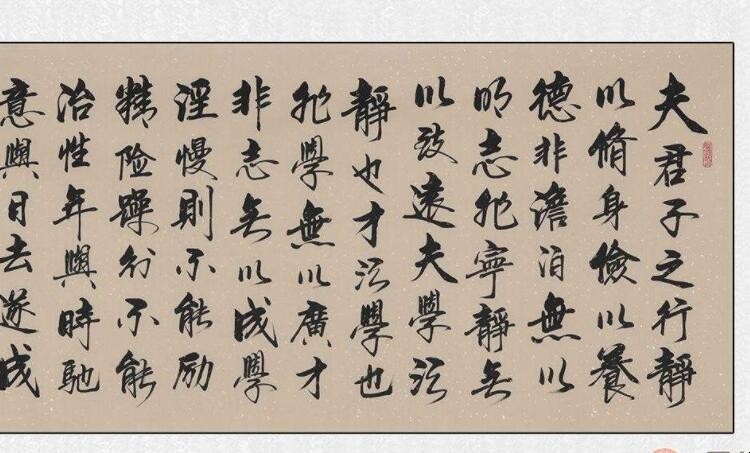 夫君子之行靜
以脩身儉以養
德非澹泊無以
明志非寧靜无
以致遠夫學須
靜也才須學也
非學無以廣才
非志无以成學
淫慢則不能励
精险躁则不能
治性年與時馳
意與日去遂成